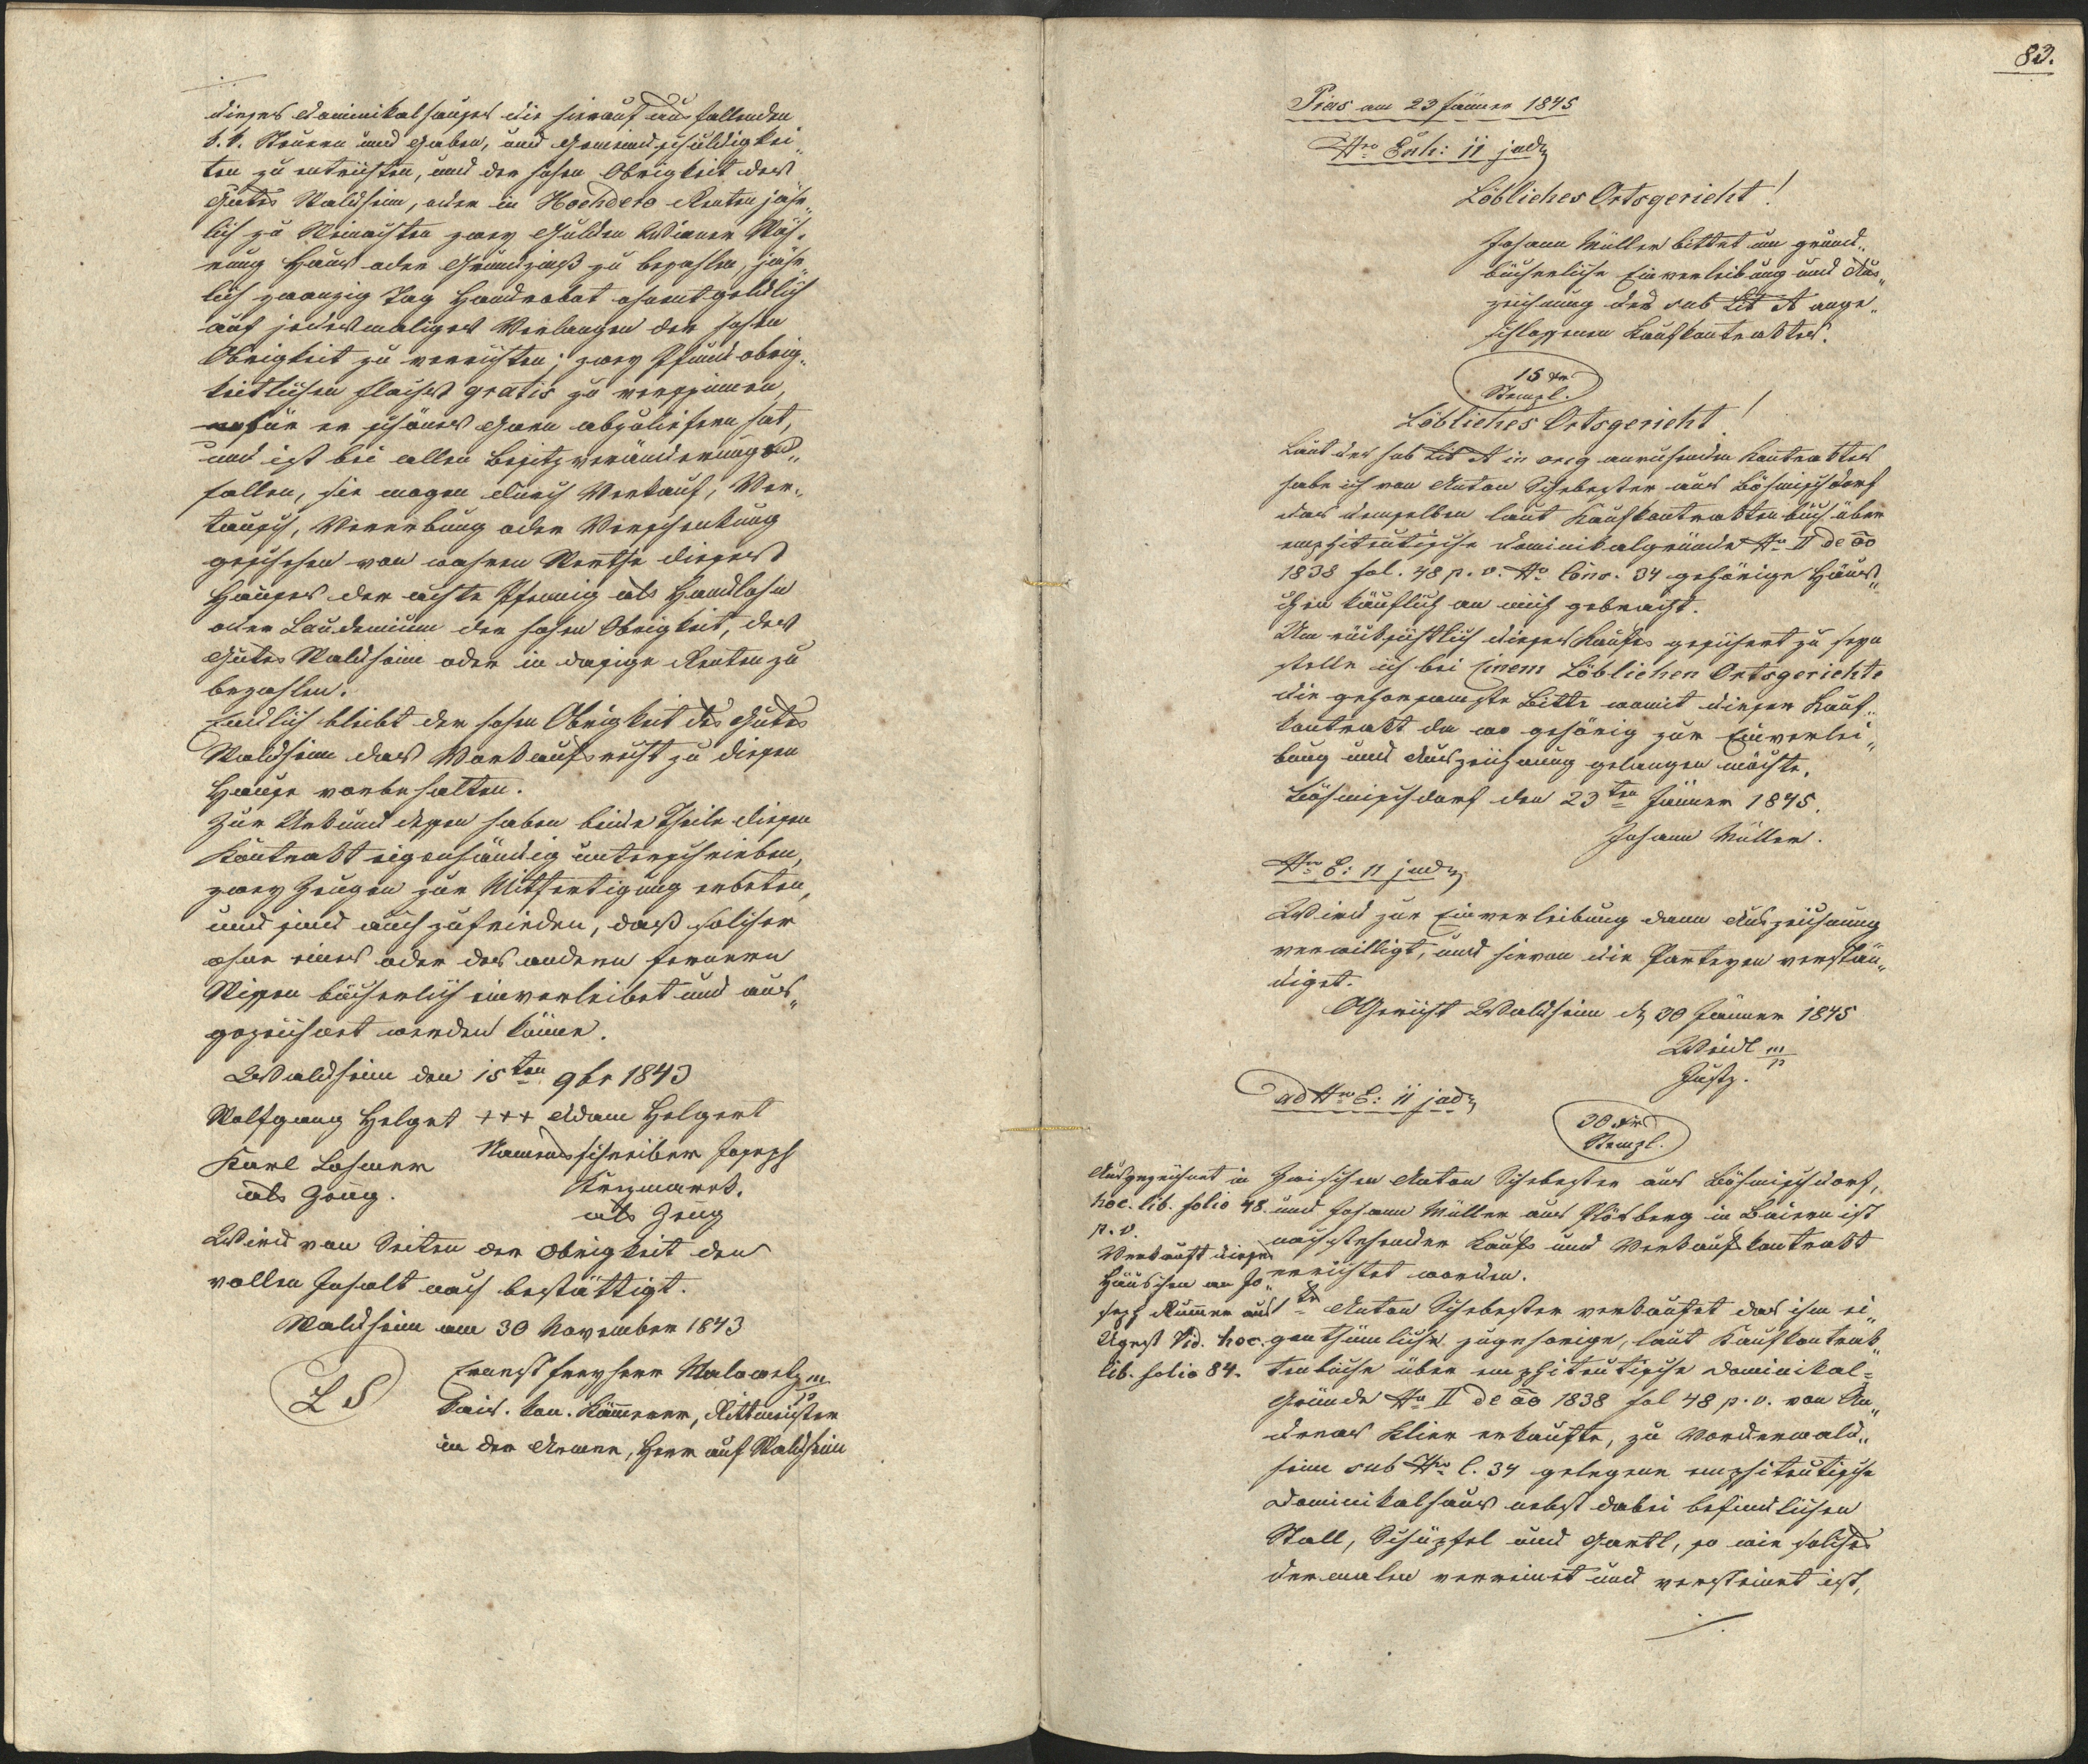 dieses Dominikalhauses die hierauf ausfallenden
k. k. Steuern und Gaben, und Gemeindschuldigkei„
ten zu entrichten, und der hohen Obrigkeit des
Gutes Waldheim, oder in Hochdero Renten jähr„
lich zu Weinachten zwey Gulden Wiener Wäh„
rung Haus oder Grundzinß zu bezahlen, jähr„
lich zwanzig Tag Handrobot ohnentgeldlich
auf jedesmaliges Verlangen der hohen
Obrigkeit zu verrichten; zwey Pfund obrig„
keitlichen Flachs gratis zu verspinnen,
wofür er schönes Garn abzuliefern hat,
und ist bei allen Besitzveränderungs„
fallen, sie mogen durch Verkauf, Ver„
tausch, Vererbung oder Verschenkung
geschehen von wahren Werthe dieses
Hauses der achte Pfennig als Handlohn
oder Laudemium der hohen Obrigkeit, des
Gutes Waldheim oder in dasige Renten zu
bezahlen.
Endlich bleibt der hohen Obrigkeit des Gutes
Waldheim das Vorkaufsrecht zu diesen
Hause vorbehalten.
Zur Urkund dessen haben beide Theile diesen
Kontrakt eigenhändig unterschrieben,
zwey Zeugen zur Mitfertigung erbeten,
und sind auch zufrieden, daß solcher
ohne eines oder des andern fernern
Wissen bücherlich einverleibet und aus„
gezeichnet werden könne.
Waldheim den 15ten 9br 1843
Wolfgang Helget +++ Adam Helgert
Karl Lohmer Namensschreiber Joseph
als Zeug.
als Zeug
Wird von Seiten der Obrigkeit den
vollen Inhalt nach bestättigt.
Waldheim am 30 November 1843
L S
Ernest Freyherr Malowetz m/p
kais. kön. Kämmerer, Rittmeister
in der Armee, Herr auf Waldheim
83.
Präs am 23 Jänner 1845
Nro Exh: 11 jud
Löbliches Ortsgericht!
Johann Müller bittet um grund„
bücherliche Einverleibung und Aus„
zeichnung des sub Lit A ange„
schlossenen Kaufkontraktes.
15 xr
Stempl.
Löbliches Ortsgericht!
Laut des sub Lit A in orig anruhenden Kontraktes
habe ich von Anton Schebester aus Böhmischdorf
das demselben laut Kaufkontraktenbuch über
emphiteutische Dominikalgründe Nro II de ao
1838 fol. 48 p. v. No Cons. 34 gehörige Häus„
chen käuflich an mich gebracht.
Um rücksichtlich dieses Kaufes gesichert zu seyn
stelle ich bei Einem Löblichen Ortsgerichte
die gehorsamste Bitte womit dieser Kauf„
kontrakt da wo gehörig zur Einverlei„
bung und Auszeichnung gelangen möchte.
Böhmischdorf den 23ten Jänner 1845.
Johann Müller.
Nro E: 11 jud
Wird zur Einverleibung dann Auszeichnung
verwilligt, und hievon die Parteyen verstän„
diget.
OGericht Waldheim d 30 Jänner 1845
Weidl m/p
Justz.
ad Nro E: 11 jud
30 xr
Stempl.
Ausgezeichnet in
hoc. lib. folio 48.
p. v.
Verkauft dieses
Häuschen an Jo„
seph Rumer aus
Ugest Vid. hoc.
lib. folio 84.
Zwischen Anton Schebester aus Böhmischdorf,
und Johann Müller aus Plösberg in Baiern ist
nachstehender Kaufs und Verkaufskontrakt
errichtet worden.
1tn Anton Schebester verkaufet das ihm ei„
genthümliche zugehorige, laut Kaufkontrak„
tenbuche über emphiteutische Dominikal=
Gründe No II de ao 1838 fol 48 p. v. von An„
dreas Klier erkaufte, zu Vorderwald„
heim sub Nro C. 34 gelegene emphiteutische
Dominikalhaus nebst dabei befindlichen
Stall, Schüpfel und Gartl, so wie solches
dermalen verreinet und versteinet ist,